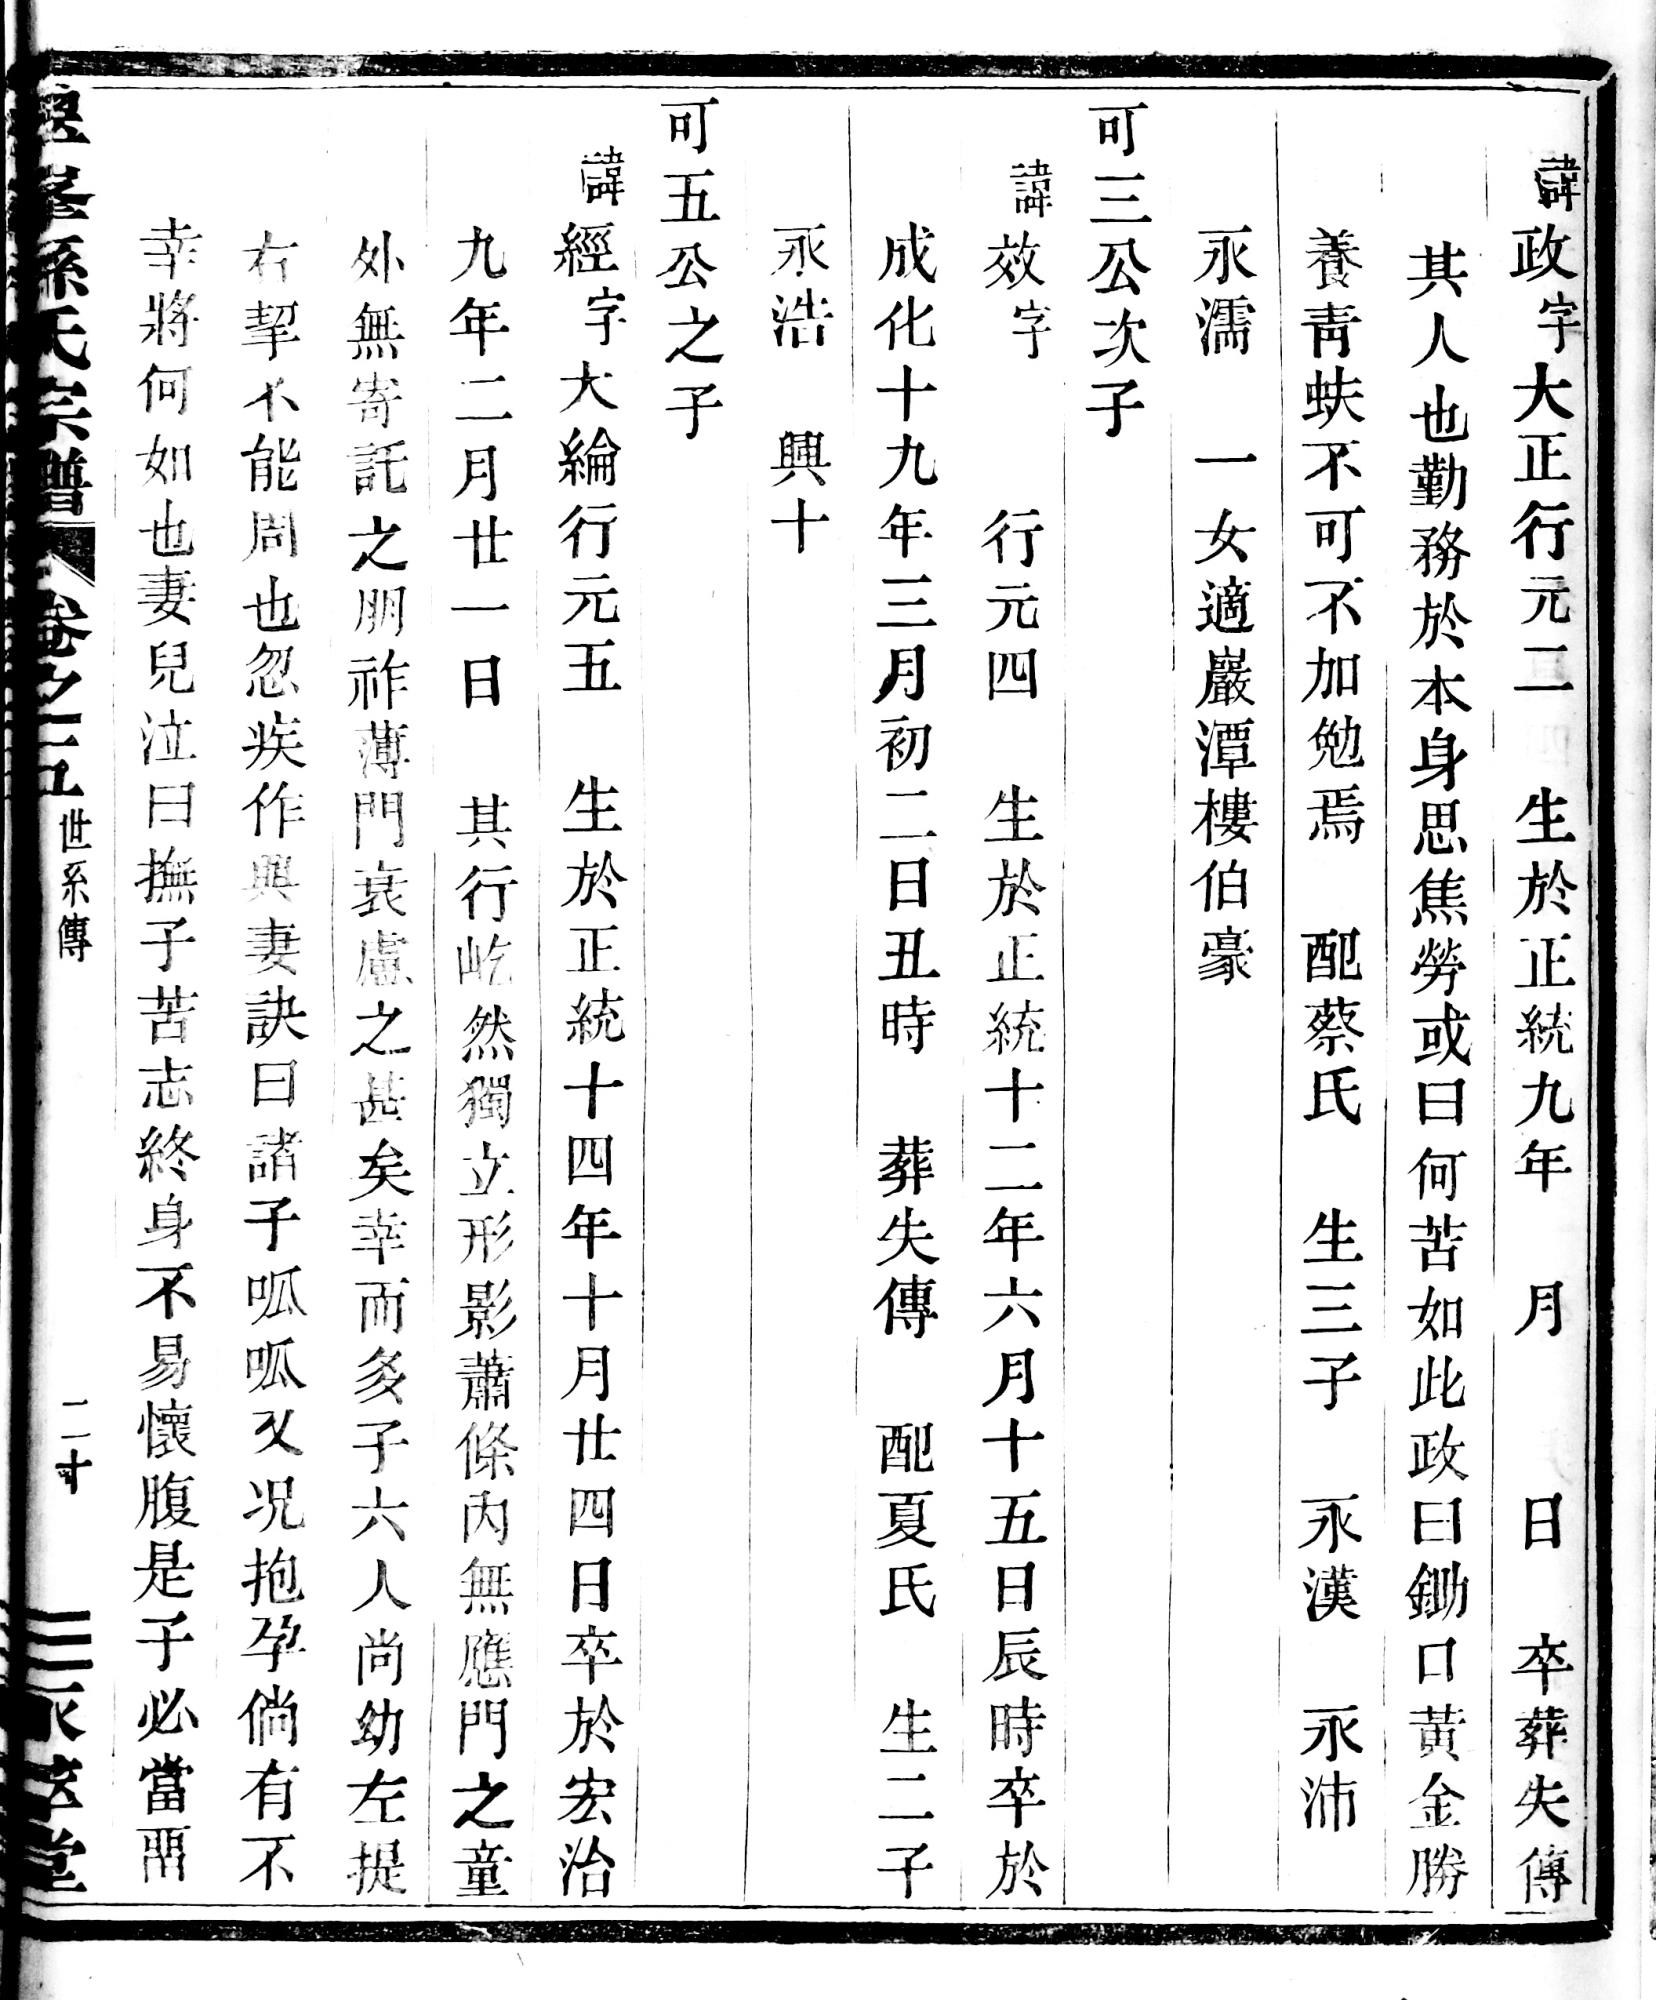 諱政字大正行元二　生於正統九年　月　日　卒葬失傳
其人也勤務於本身思焦勞或曰何苦如此政曰鋤口黃金勝
養靑蚨不可不加勉焉　配蔡氏　生三子　永漢　永沛
永濡　一女適巖潭樓伯豪
可三公次子
諱效字　行元四　生於正統十二年六月十五日辰時卒於
成化十九年三月初二日丑時　葬失傳　配夏氏　生二子
永浩　興十
可五公之子
諱經字大綸行元五　生於正統十四年十月廿四日卒於宏治
九年二月廿一日　其行屹然獨立形影蕭條內無應門之童
外無寄託之朋祚薄門衰慮之甚矣幸而多子六人尙幼左提
右挈不能周也忽疾作與妻訣曰諸子呱呱又况抱孕倘有不
幸將何如也妻兒泣曰撫子苦志終身不易懷腹是子必當
峯孫氏宗譜　卷之二五　世系傳　二十　永萃堂